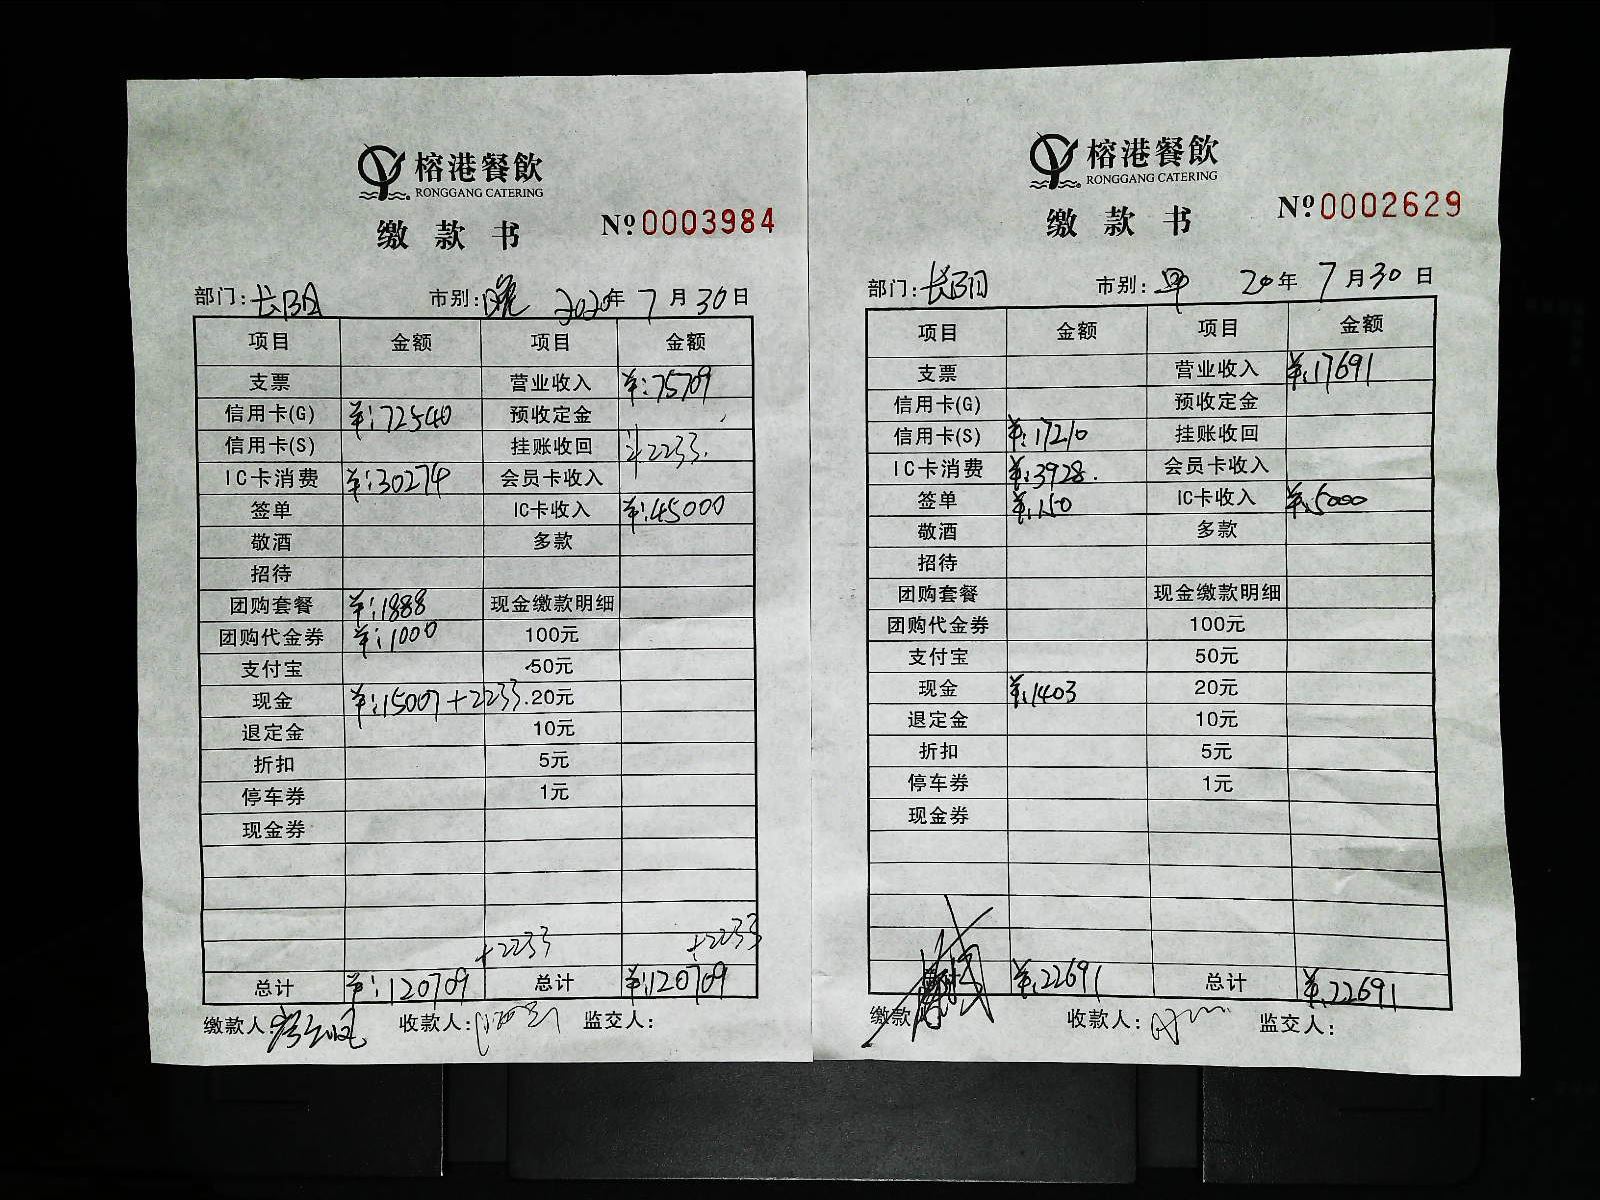 榕港餐飲
RONGGANG CATERING
缴款书 Nº 0003984
部门:长阳 市别:晚 2020年 7月30日
项目 金额 项目 金额
支票 营业收入 ¥:75709
信用卡(G) ¥:72540 预收定金
信用卡(S) 挂账收回 +2233.
IC卡消费 ¥:30274 会员卡收入
签单 IC卡收入 ¥:45000
敬酒 多款
招待
团购套餐 ¥:1888 现金缴款明细
团购代金券 ¥:1000 100元
支付宝 50元
现金 ¥:15007+2233. 20元
退定金 10元
折扣 5元
停车券 1元
现金券
+2233 +2233
总计 ¥:120709 总计 ¥:120709
缴款人: 收款人: 监交人:
榕港餐飲
RONGGANG CATERING
缴款书 Nº 0002629
部门:长阳 市别:早 20年 7月30日
项目 金额 项目 金额
支票 营业收入 ¥:17691
信用卡(G) 预收定金
信用卡(S) ¥:17210 挂账收回
IC卡消费 ¥:3928. 会员卡收入
签单 ¥:150 IC卡收入 ¥:5000
敬酒 多款
招待
团购套餐 现金缴款明细
团购代金券 100元
支付宝 50元
现金 ¥:1403 20元
退定金 10元
折扣 5元
停车券 1元
现金券
¥:22691 总计 ¥:22691
缴款 收款人: 监交人: